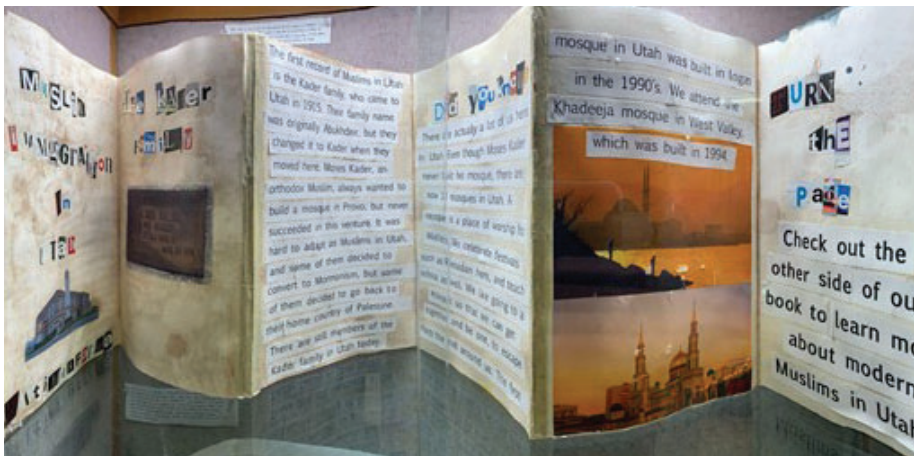 Muslim
Immigration
In
Utah
The Kader
Family
The first record of Muslims in Utah
is the Kader family, who came to
Utah in 1915. Their family name
was originally Abukhdeir, but they
changed it to Kader when they
moved here. Moses Kader, an
orthodox Muslim, always wanted to
build a mosque in Provo, but never
succeeded in this venture. It was
hard to adapt as Muslims in Utah,
and some of them decided to
convert to Mormonism, but some
of them decided to go back to
their home country of Palestine.
There are still members of the
Kader family in Utah today.
Did you know
There are actually a lot of us here
in Utah. Even though Moses Kader
never built his mosque, there are
now mosques in Utah. A
mosque is a place of worship for
Muslims. We celebrate festivals
such as Ramadan here, and teach
as well. We like going to a
mosque so that we can get
together and be one, to escape
from the evil around us. The first
mosque in Utah was built in Logan
in the 1990's. We attend the
Khadeeja mosque in West Valley,
which was built in 1994.
TURN
thE
PadE
Check out the
other side of ou
book to learn mo
about modern
Muslims in Utah